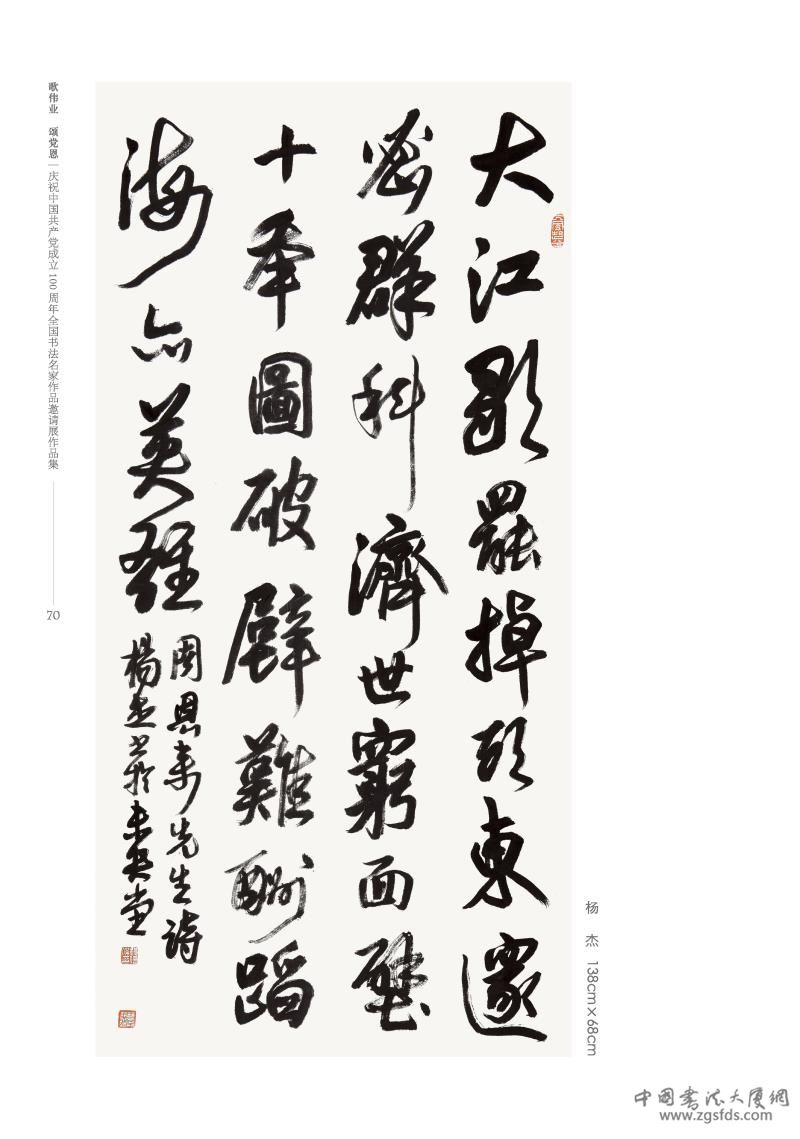 大江歌罷掉頭東邃
密群科濟世窮面壁
十年圖破壁難酬蹈
海亦英雄
周恩來先生詩
楊杰書於未央堂
歌伟业 颂党恩 | 庆祝中国共产党成立100周年全国书法名家作品邀请展作品集
70
杨 杰 138cm×68cm
中国书法大厦網
www.zgsfds.com